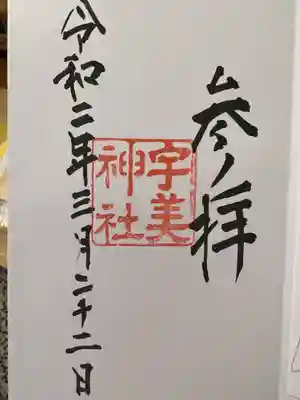 参拝
宇美
神社
令和二年三月二十二日